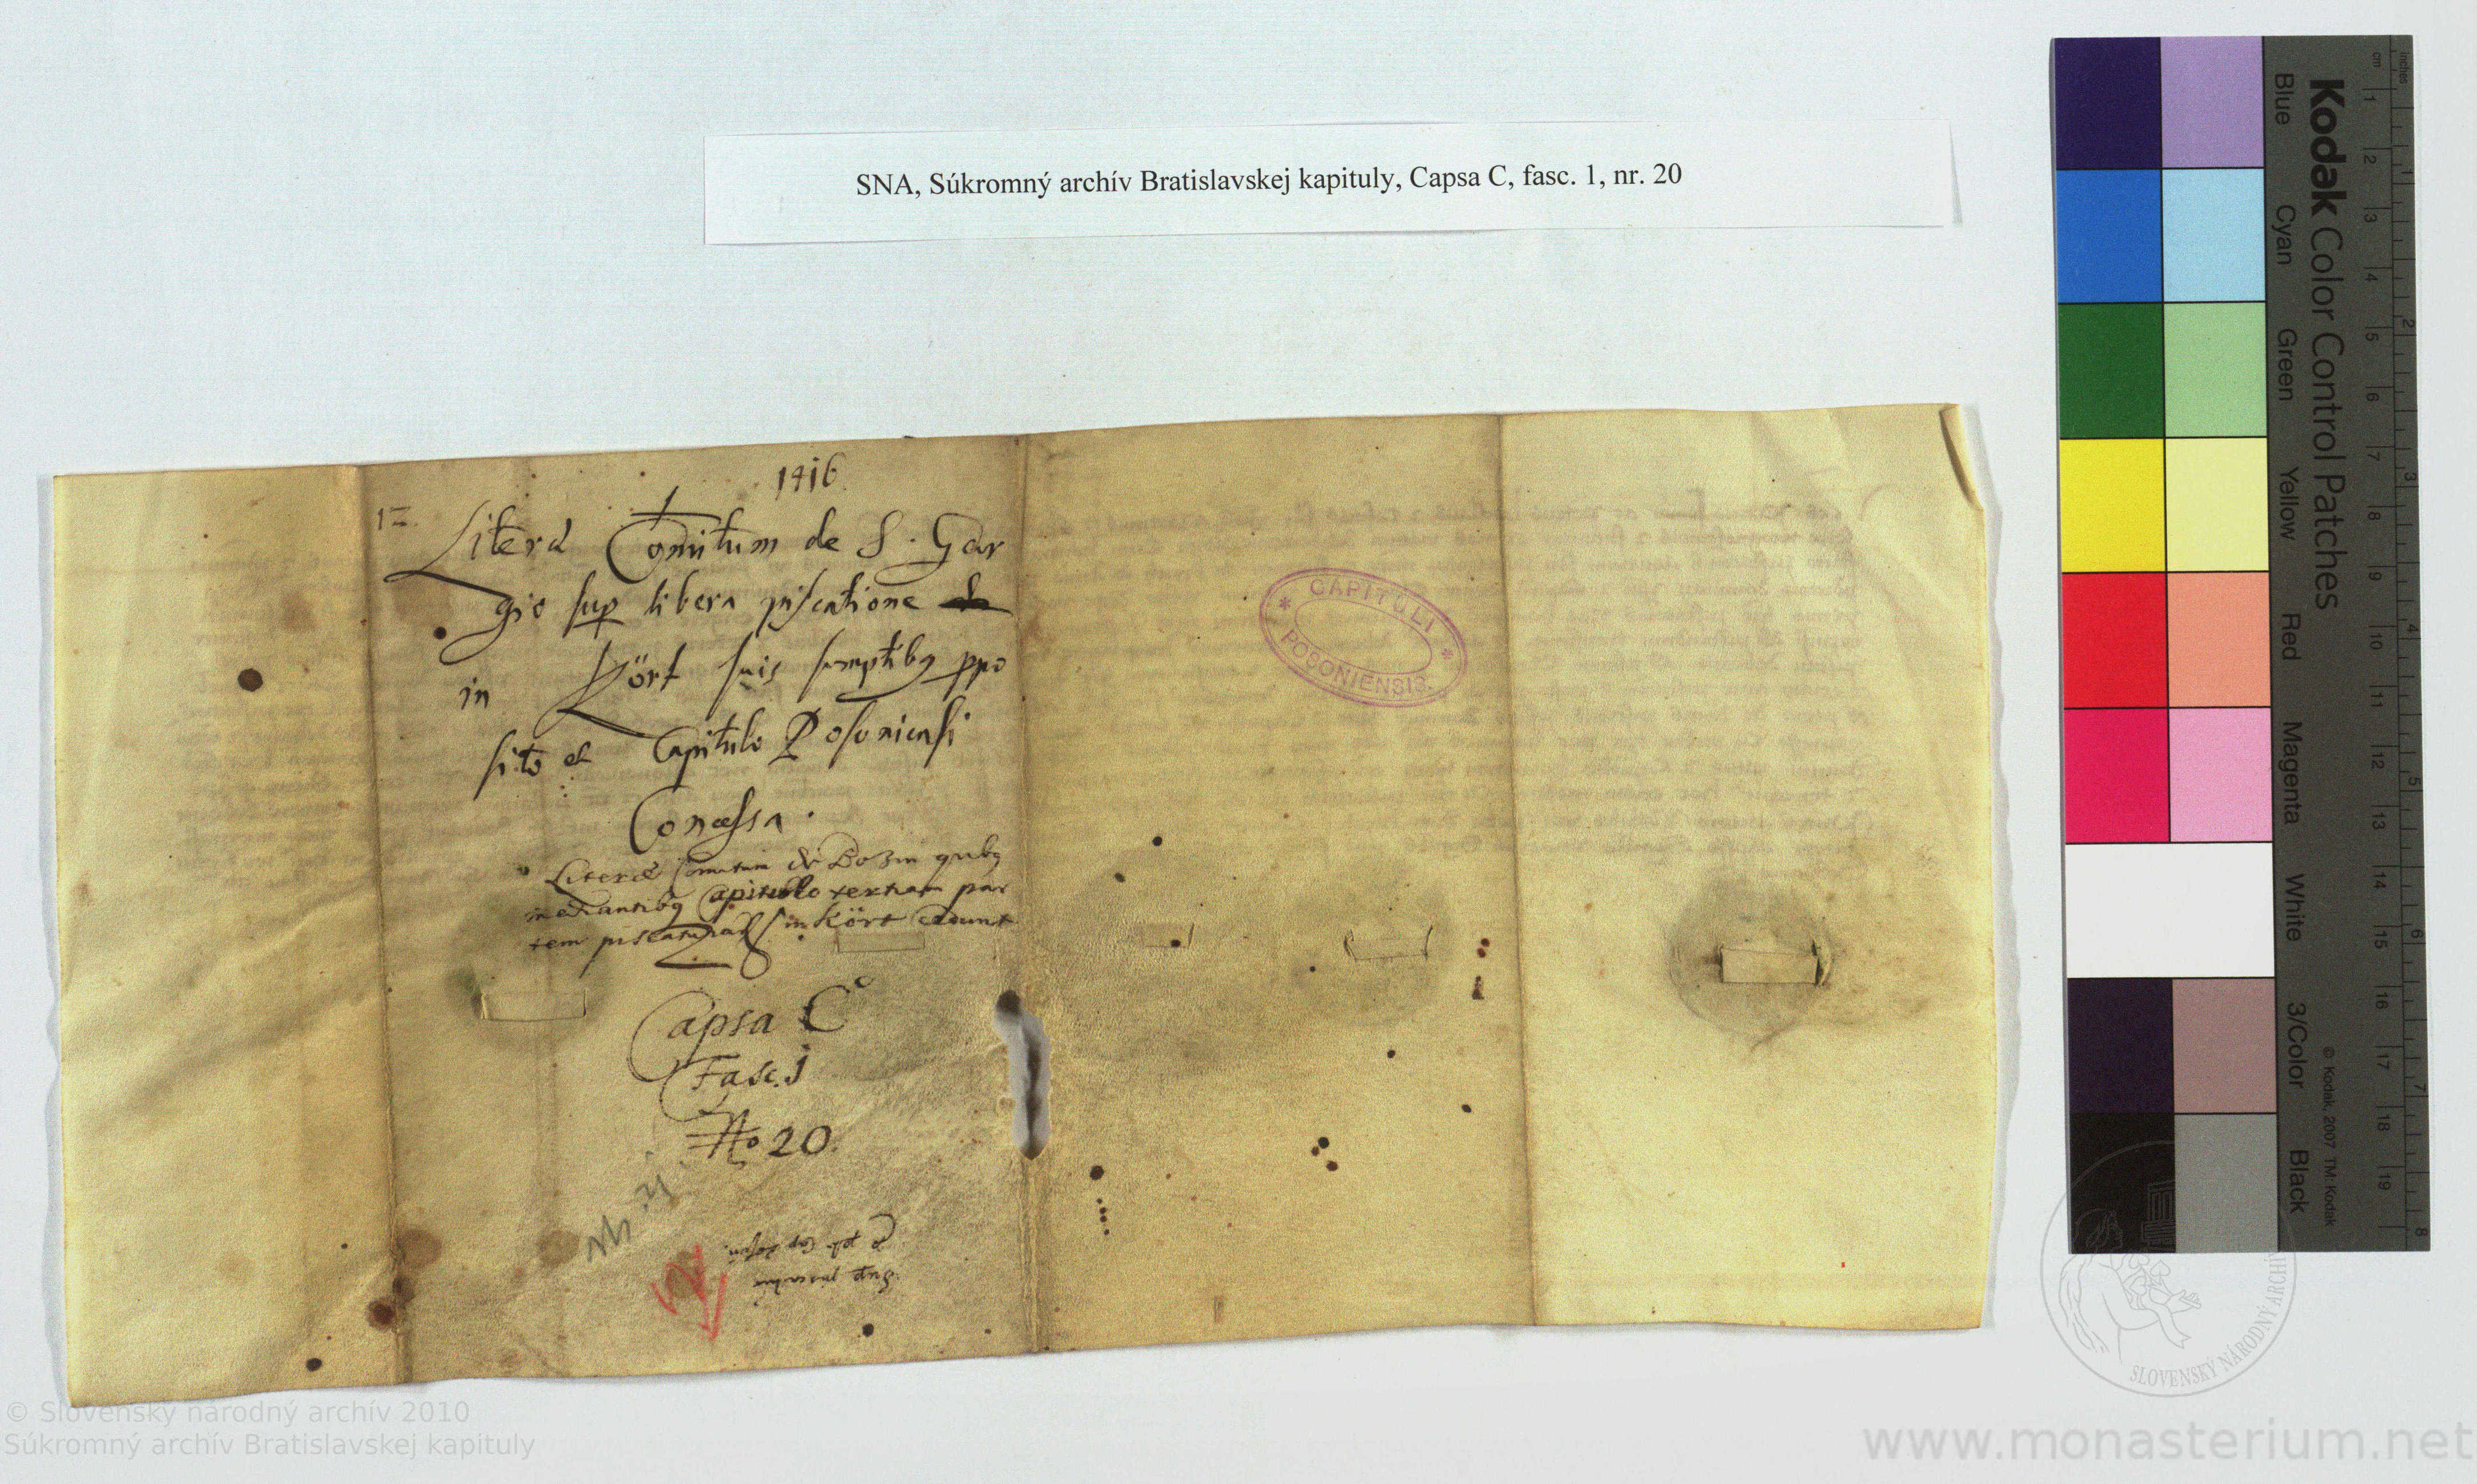 SNA, Súkromný archív Bratislavskej kapituly, Capsa C, fasc. 1, nr. 20
1416
Literæ Comitum de S. Geor
gio sup libera piscatione
in Kört suis sumptibq ppo
sito et Capitulo Posoniensi
Concessa.
Literæ Comitum de Bozin quibq
mediantibq Capitulo tertiam par
tem piscaturas in Kört cedunt
Capsa C
Fasc. 1
No 20.
CAPITULI
POSONIENSIS.
Kodak Color Control Patches
Blue Cyan Green Yellow Red Magenta White 3/Color Black
© Kodak, 2007 TM: Kodak
inches 1 2 3 4 5 6 7 8
cm 1 2 3 4 5 6 7 8 9 10 11 12 13 14 15 16 17 18 19
SLOVENSKÝ NÁRODNÝ ARCHÍV
© Slovenský národný archív 2010
Súkromný archív Bratislavskej kapituly
www.monasterium.net